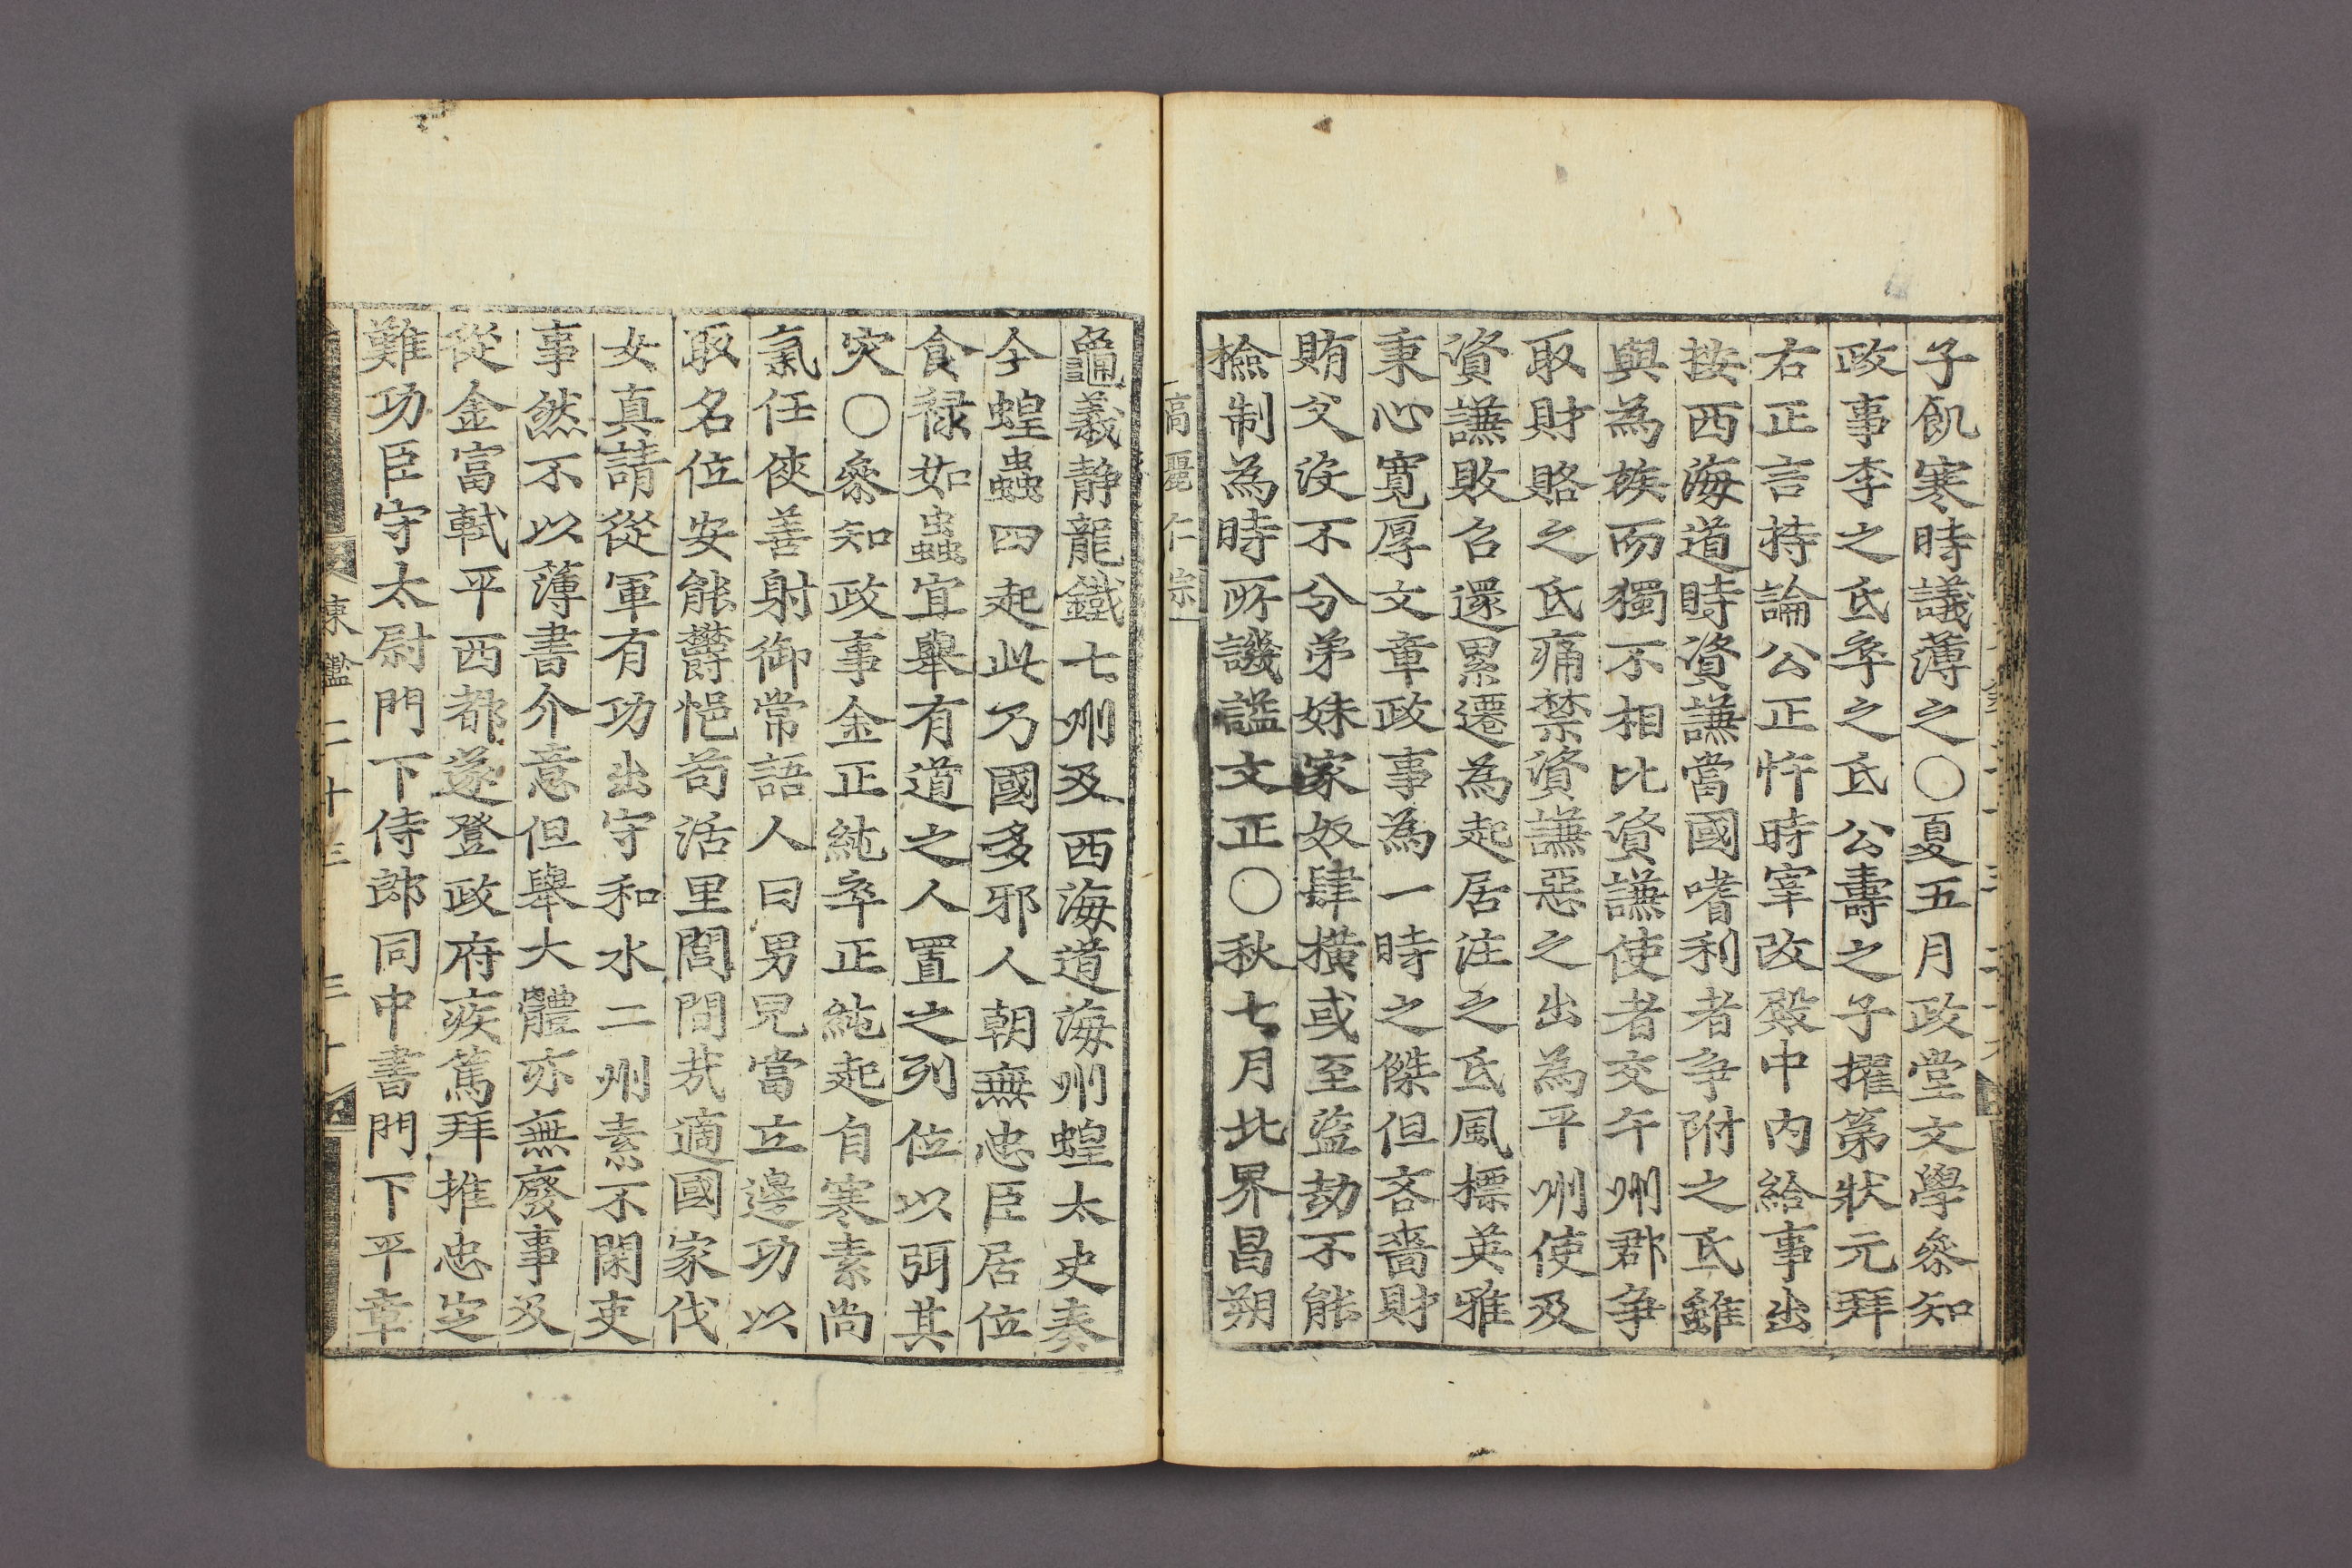 子飢寒時議薄之〇夏五月政堂文學叅知
政事李之氐卒之氐公壽之子擢第狀元拜
右正言持論公正忤時宰改殿中內給事出
按西海道時資謙當國嗜利者爭附之氐雖
與爲族而獨不相比資謙使者交午州郡爭
取財賂之氐痛禁資謙惡之出爲平州使及
資謙敗召還累遷爲起居注之氐風標英雅
秉心寬厚文章政事爲一時之傑但吝嗇財
賄父沒不分弟妹家奴肆橫或至盜劫不能
撿制爲時所譏謚文正〇秋七月北界昌朔
高麗仁宗
龜義静龍鐵七州及西海道海州蝗太史奏
今蝗蟲四起此乃國多邪人朝無忠臣居位
食祿如蟲宜舉有道之人置之列位以弭其
灾〇叅知政事金正純卒正純起自寒素尚
氣任俠善射御常語人曰男兒當立邊功以
取名位安能欝悒苟活里閭間哉適國家伐
女真請從軍有功出守和水二州素不閑吏
事然不以薄書介意但舉大體亦無廢事及
從金富軾平西都遂登政府疾篤拜推忠定
難功臣守太尉門下侍郎同中書門下平章
東鑑二十三 三十